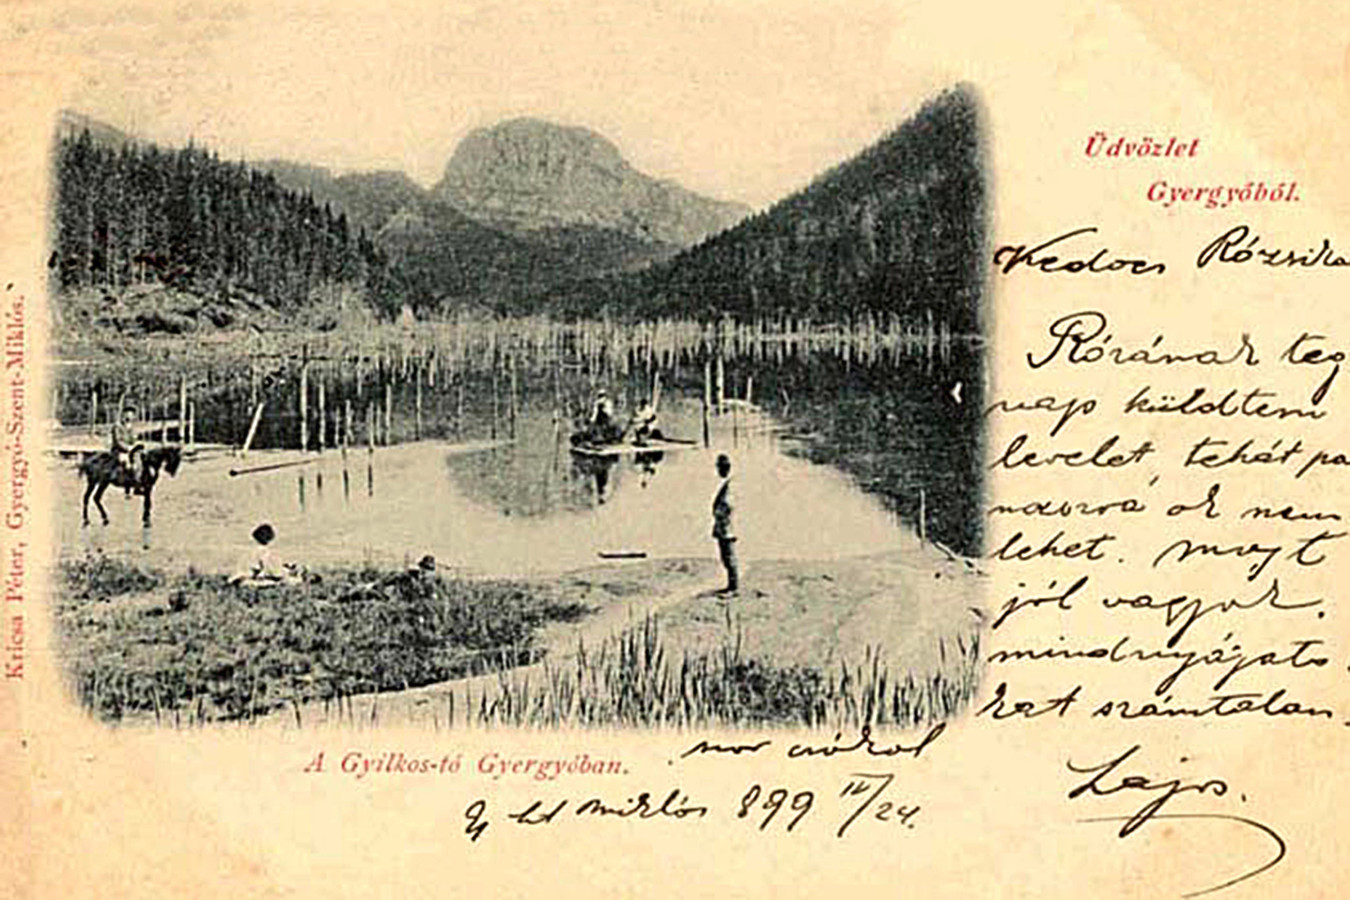 Üdvözlet
Gyergyóból.
Kedves Rózsika
Rózának teg
nap küldtem
levelet, tehát pa
ok nem
lehet. Most
jól vagyok.
mindnyájato
kat számtalan
szor csókol
Lajos.
A Gyilkos-tó Gyergyóban.
Miklós 899 II/24.
Kricsa Péter, Gyergyó-Szent-Miklós.